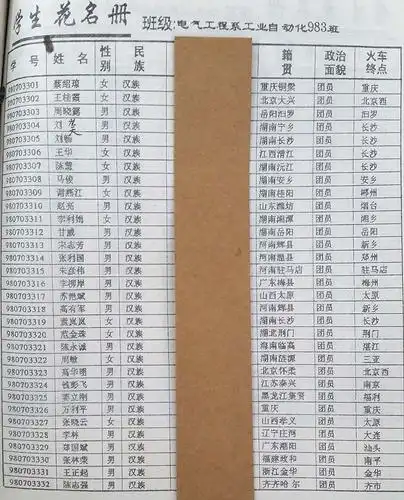 学生花名册 班级:电气工程系工业自动化983班
学号 姓名 性别 民族 籍贯 政治面貌 火车终点
980703301 蔡绍琼 女 汉族 重庆铜梁 团员 重庆
980703302 王桂霞 女 汉族 北京大兴 团员 北京西
980703303 周晓露 男 汉族 岳阳汨罗 团员 汨罗
980703304 刘 男 汉族 湖南宁乡 团员 长沙
980703305 刘畅 男 汉族 湖南长沙 团员 长沙
980703306 王华 女 汉族 江西清江 团员 长沙
980703307 陈盟 女 汉族 湖南沅江 团员 长沙
980703308 马俊 男 汉族 湖南安乡 团员 安乡
980703309 谢燕江 女 汉族 湖南桂阳 团员 郴州
980703310 赵亮 男 汉族 山东潍坊 团员 烟台
980703311 李利娟 女 汉族 湖南湘潭 团员 湘乡
980703312 甘威 男 汉族 湖南岳阳 团员 岳阳
980703313 宋志芳 男 汉族 河南辉县 团员 新乡
980703314 张利国 男 汉族 河南温县 团员 郑州
980703315 朱彦伟 男 汉族 河南驻马店 团员 驻马店
980703316 李柳岸 男 汉族 广东梅县 团员 梅州
980703317 苏艳斌 男 汉族 山西太原 团员 太原
980703318 高有军 男 汉族 河南辉县 团员 新乡
980703319 袁岚岚 女 汉族 湖南长沙 团员 长沙
980703320 范金珠 女 汉族 湖北荆门 团员 荆门
980703321 陈永诚 男 汉族 海南临高 团员 湛江
980703322 周敏 女 汉族 湖南涟源 团员 三亚
980703323 高华明 男 汉族 北京怀柔 团员 北京西
980703324 钱彭飞 男 汉族 江苏泰兴 团员 南京
980703325 姜立刚 男 汉族 黑龙江集贤 团员 福利
980703326 万利平 男 汉族 重庆 团员 重庆
980703327 张晓云 女 汉族 山西孝义 团员 太原
980703328 李林 男 汉族 辽宁庄河 团员 大连
980703329 郑国斌 男 汉族 广东潮阳 团员 汕头
980703330 张林荣 男 汉族 福建政和 团员 南平
980703331 王正起 男 汉族 浙江金华 团员 金华
980703332 陈志强 男 汉族 齐齐哈尔 团员 齐市